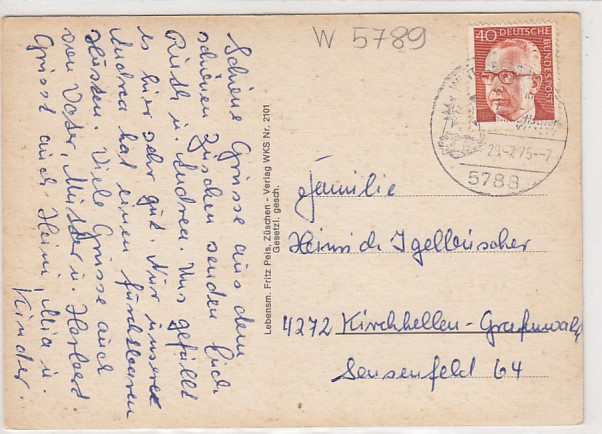 W 5789
40
DEUTSCHE BUNDESPOST
-7.75.-7
5788
Schöne Grüsse aus dem
schönen Züschen senden Euch
Ruth u. Andrea. Uns gefällt
es hier sehr gut. Nur unsere
Andrea hat einen furchtbaren
Husten. Viele Grüsse auch
von Vater, Mutter u. Herbert.
Grüsst auch Heini, Mia u.
Kinder.
Lebensm. Fritz Pels, Züschen - Verlag WKS Nr. 2101
Gesetzl. gesch.
Familie
Heinrich Igelbüscher
4272 Kirchhellen-Grafenwald
Sensenfeld 64